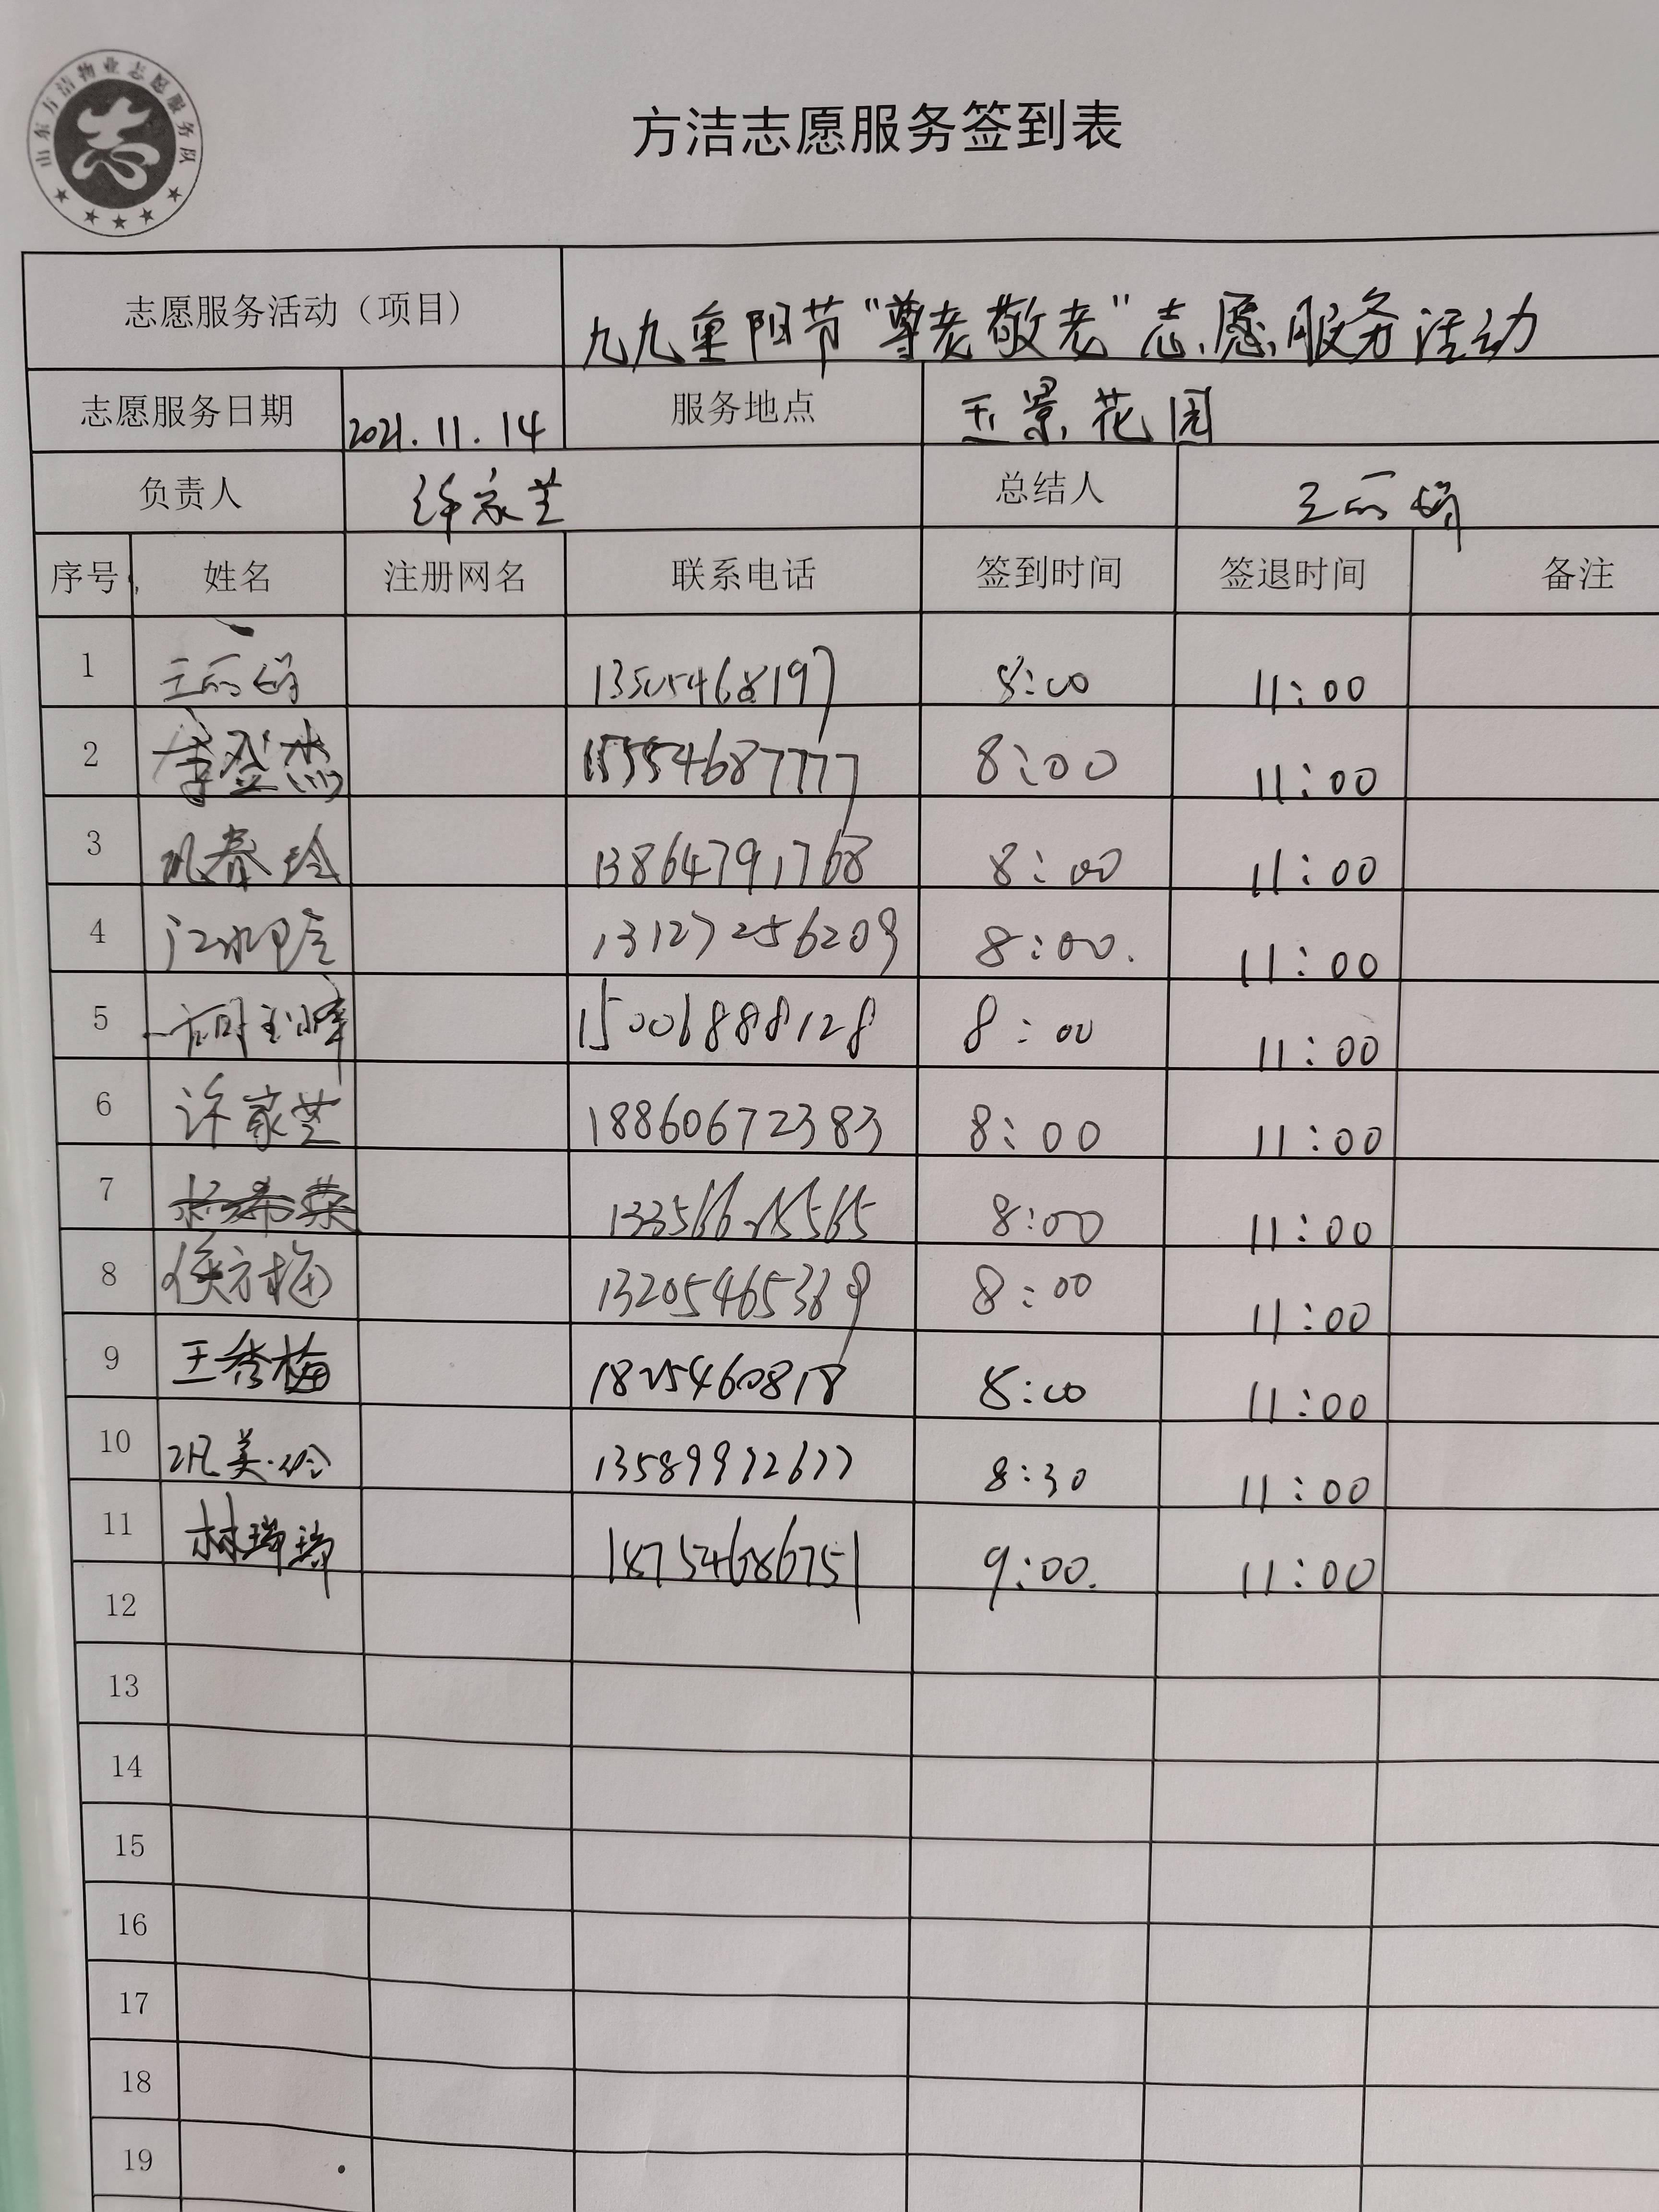 山东方洁物业志愿服务队
志
方洁志愿服务签到表
志愿服务活动（项目） 九九重阳节“尊老敬老”志愿服务活动
志愿服务日期 2021.11.14 服务地点 玉景花园
负责人 许家芝 总结人 王丽娟
序号 姓名 注册网名 联系电话 签到时间 签退时间 备注
1 王丽娟 13505468197 8:00 11:00
2 李登杰 15554687777 8:00 11:00
3 巩春玲 13864791768 8:00 11:00
4 13127256209 8:00. 11:00
5 15006888128 8:00 11:00
6 许家芝 18860672383 8:00 11:00
7 杨希荣 8:00 11:00
8 侯方梅 13205465389 8:00 11:00
9 王秀梅 1825460818 8:00 11:00
10 巩美玲 8:30 11:00
11 林瑞瑞 18754686751 9:00. 11:00
12
13
14
15
16
17
18
19